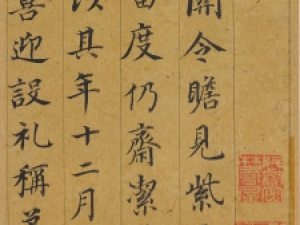 関令瞻見紫
當度仍齋潔
以其年十二月
喜迎設礼稱